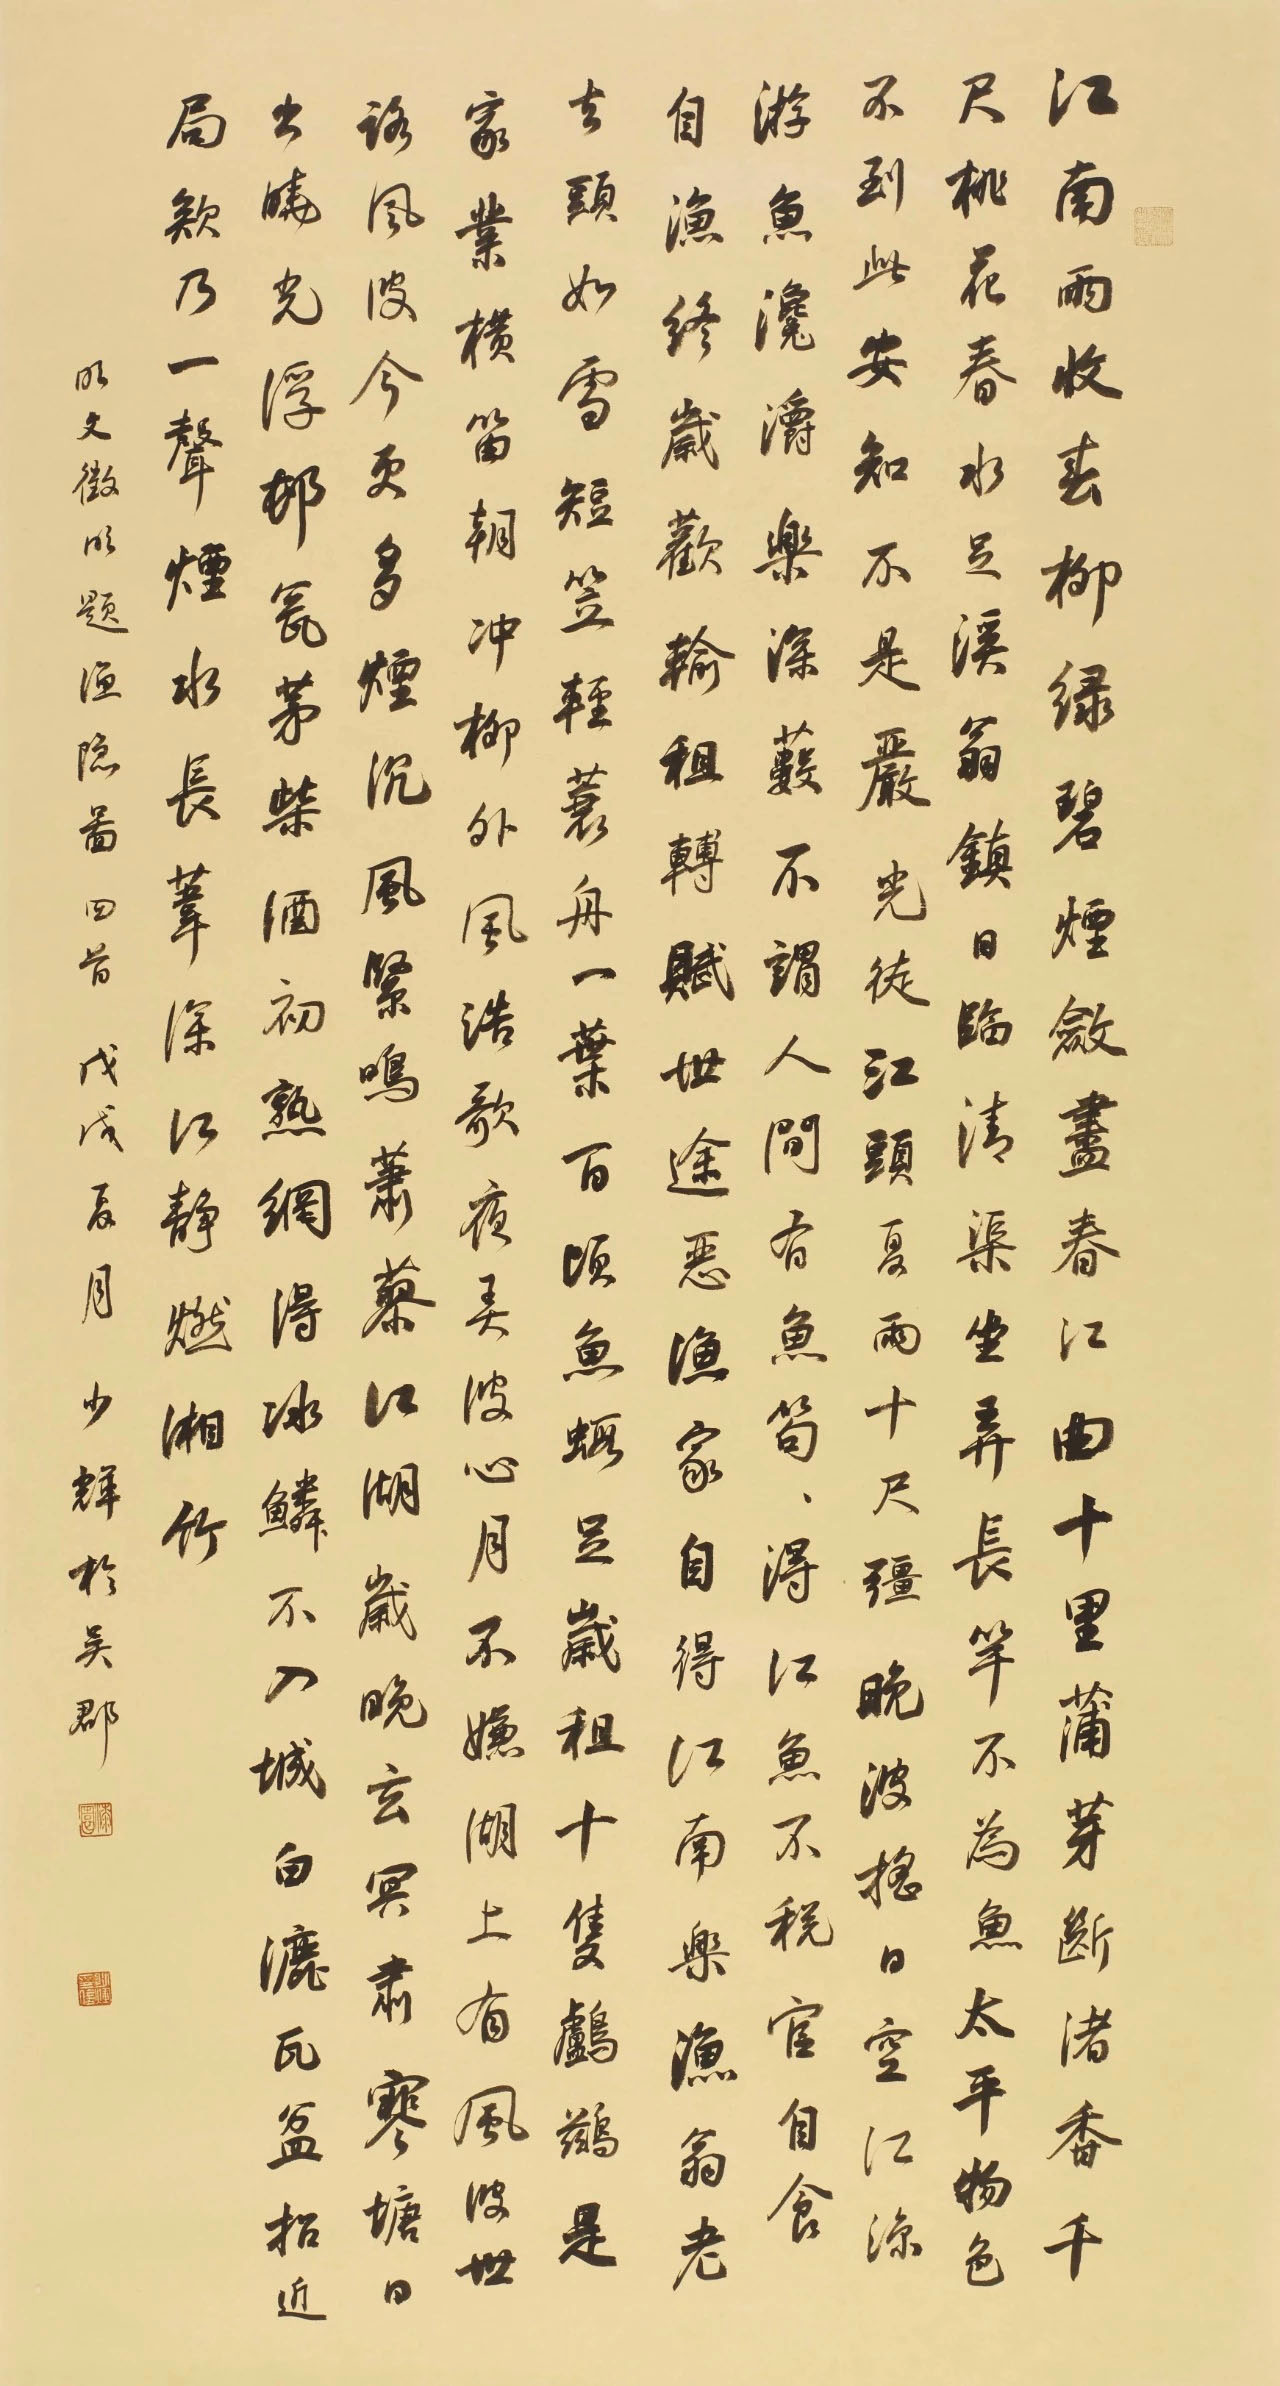 江南雨收春柳绿碧煙斂盡春江曲十里蒲芽斷渚香千
尺桃花春水足溪翁鎮日臨清渠坐弄長竿不為魚太平物色
不到此安知不是嚴光徒江頭夏雨十尺疆晚波搖日空江涼
游魚瀺灂樂深藪不謂人間有魚笱、得江魚不税官自食
自漁終歲歡輸租轉賦世途惡漁家自得江南樂漁翁老
去頭如雪短笠輕蓑舟一葉百頃魚蝦足歲租十隻鸕鷀是
家業橫笛朝冲柳外風浩歌夜弄波心月不嫌湖上有風波世
路風波今更多煙沉風緊鳴蕭蔡江湖歲晚玄冥肅寒塘日
出曉光浮邨瓮茅柴酒初熟網得冰鱗不入城白漉瓦盆招近
局欸乃一聲煙水長葦深江静燃湘竹
明文徵明題漁隐圖四首 戊戌夏月 少輝於吴郡